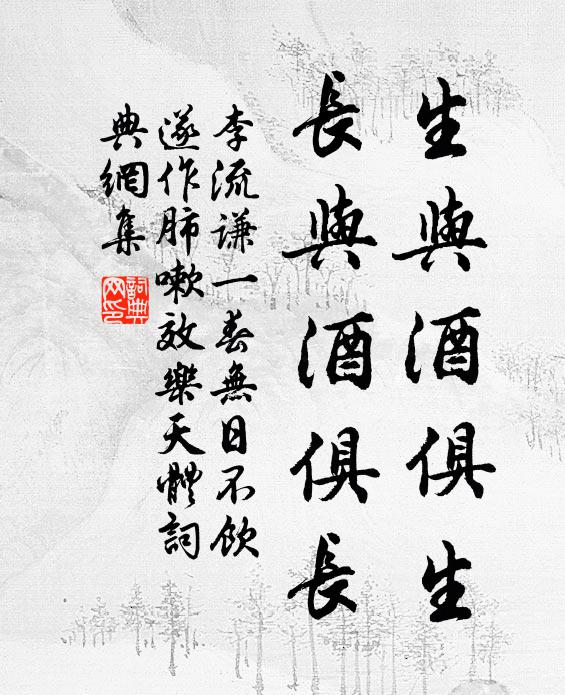 生與酒俱生
長與酒俱長
李流謙一春無日不飲
遂作肺嗽效樂天體詞
典網集
詞典網印